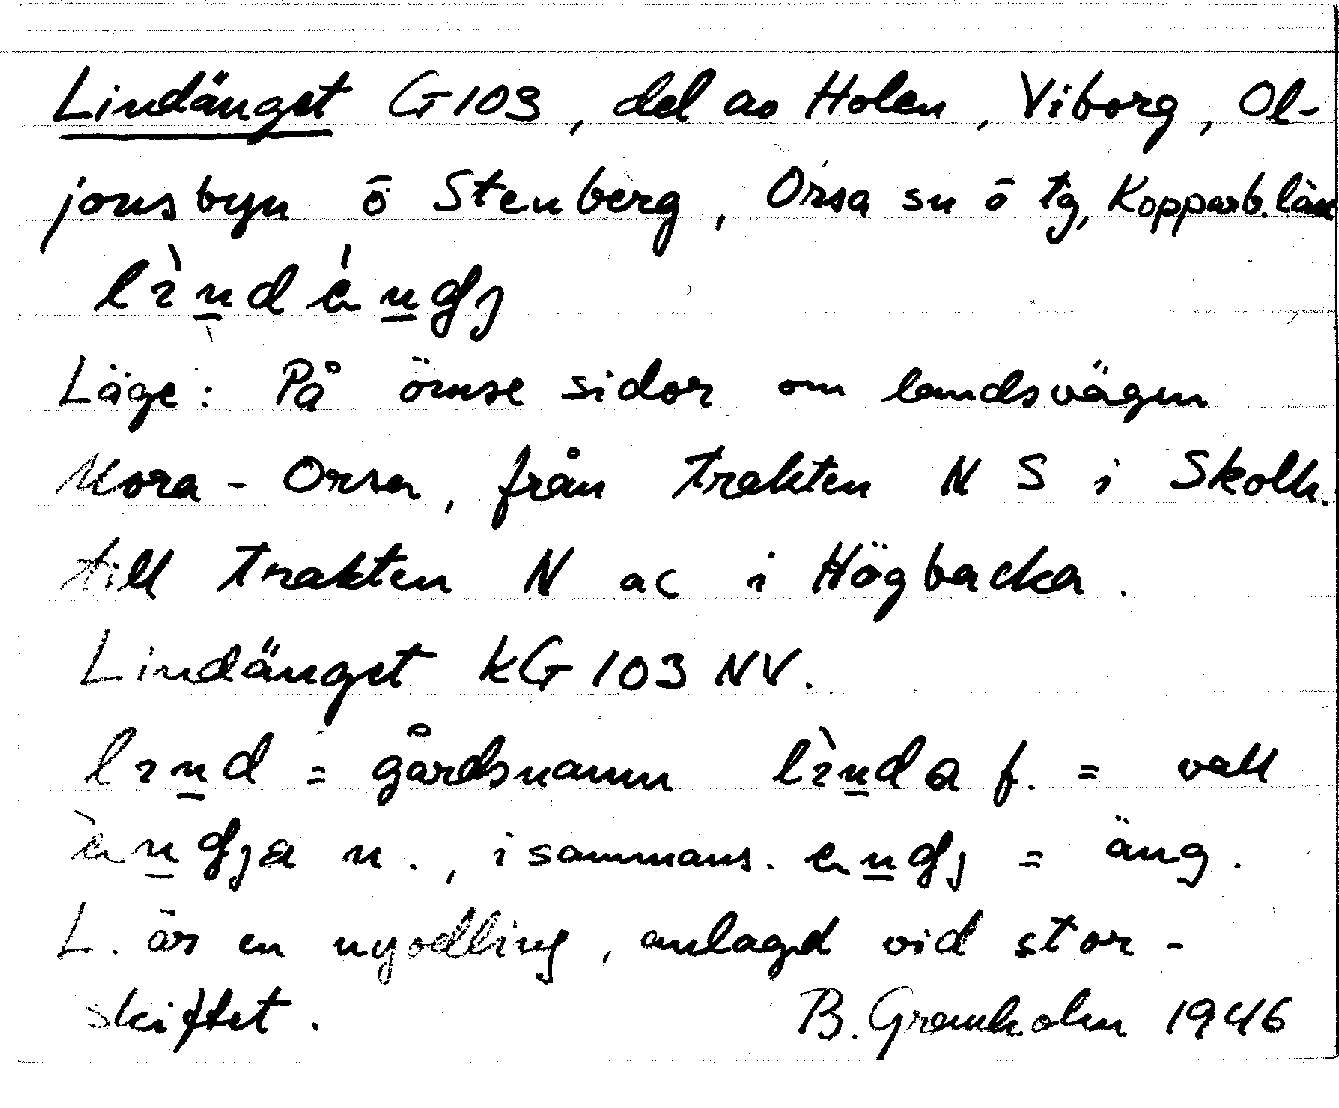 Lindänget G103, del av Holen, Viborg, Ol-
jonsbyn o Stenberg, Orsa sn o tg, Kopparb. län
Läge: På ömse sidor om landsvägen
Mora - Orsa, från trakten N S i Skolh.
till trakten N ac i Högbacka.
Lindänget kG 103 NV.
lind = gårdsnamn linda f. = vall
ängja n., i sammans. ängj = äng.
L. är en nyodling, anlagd vid stor-
skiftet. B. Gramholm 1946